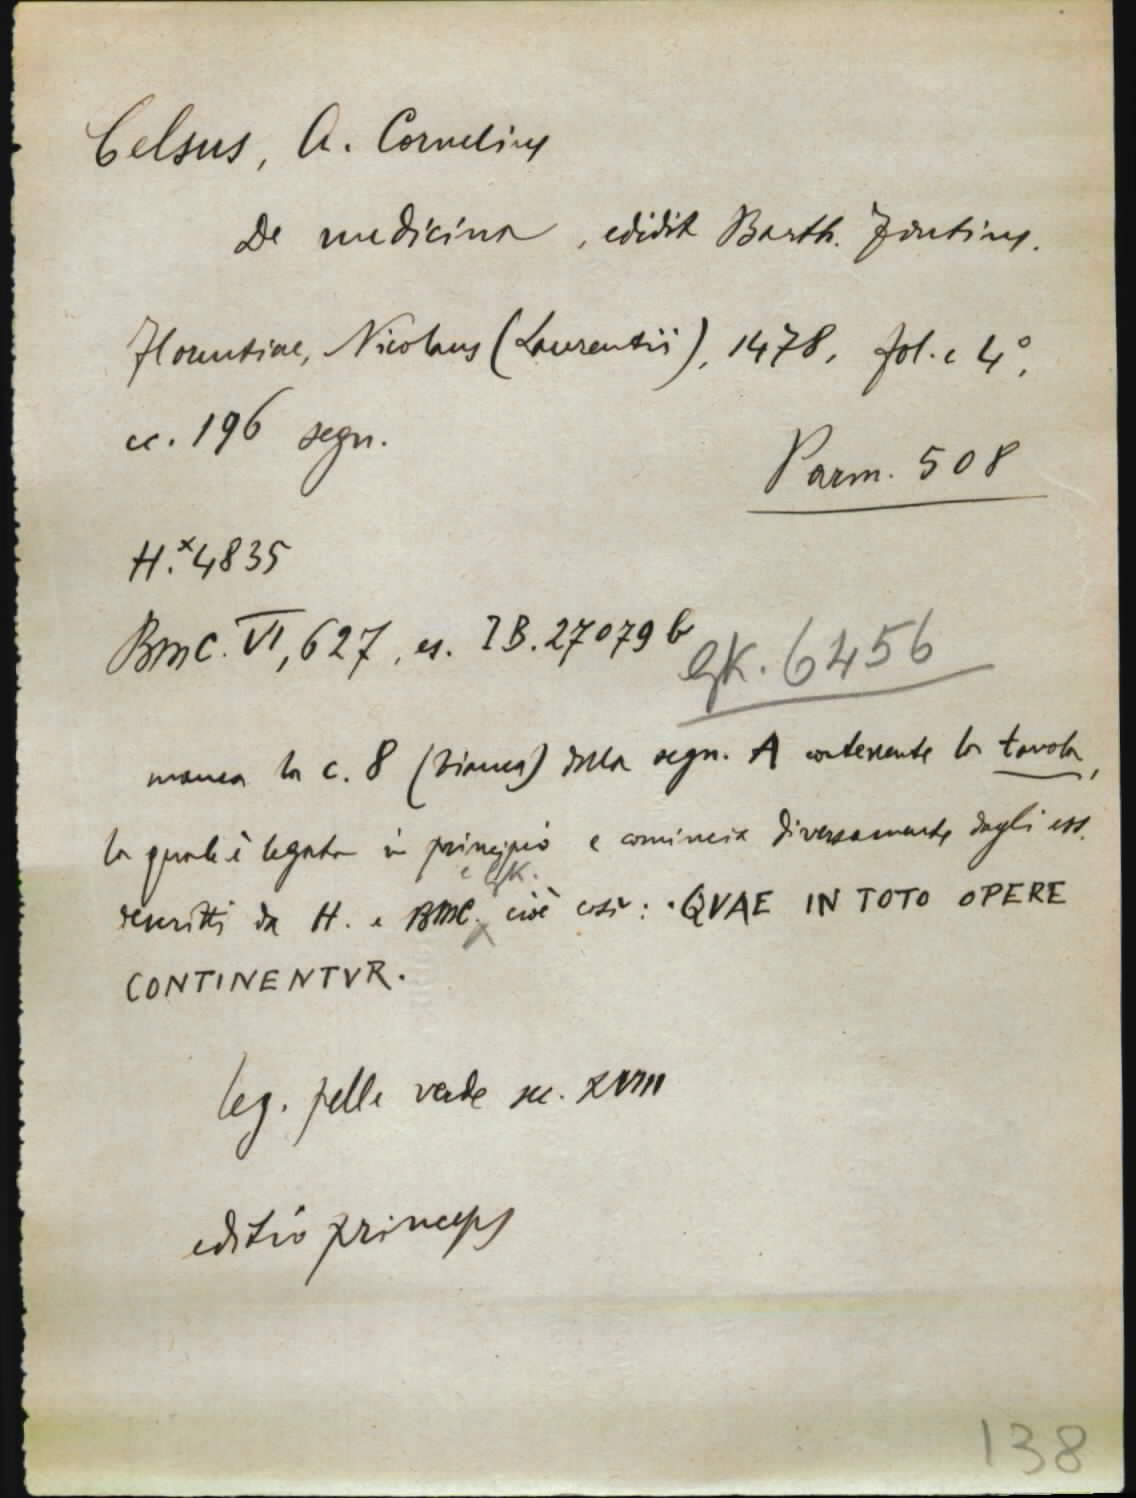 Celsus, A. Cornelius
De medicina, edidit Barth. Fontius.
Florentiae, Nicolaus (Laurentii), 1478, fol. e 4°,
cc. 196 segn.
Parm. 508
H.x4835
BMC. VI, 627, es. IB. 27079 b
GK. 6456
manca la c. 8 (bianca) della segn. A contenente la tavola,
la quale è legata in principio e comincia diversamente dagli ess.
e GK.
descritti da H. e BMC. cioè così: ·QVAE IN TOTO OPERE
CONTINENTVR.
leg. pelle verde sec. XVIII
editio princeps
138